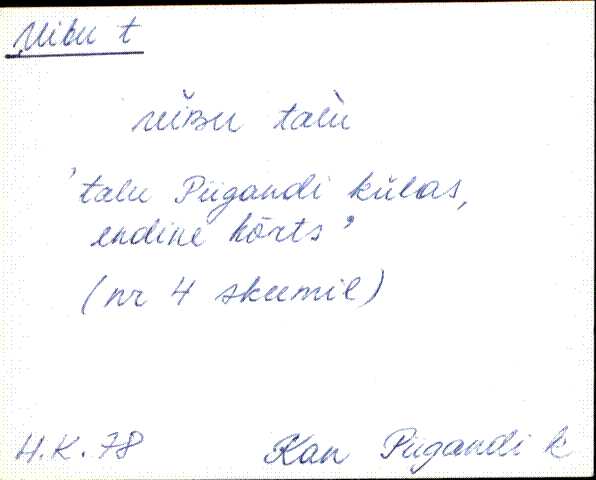 Niibu t
niiʙu talù
'talu Piigandi külas,
endine kõrts'
(nr 4 skeemil)
H.K. 78 Kan Piigandi k